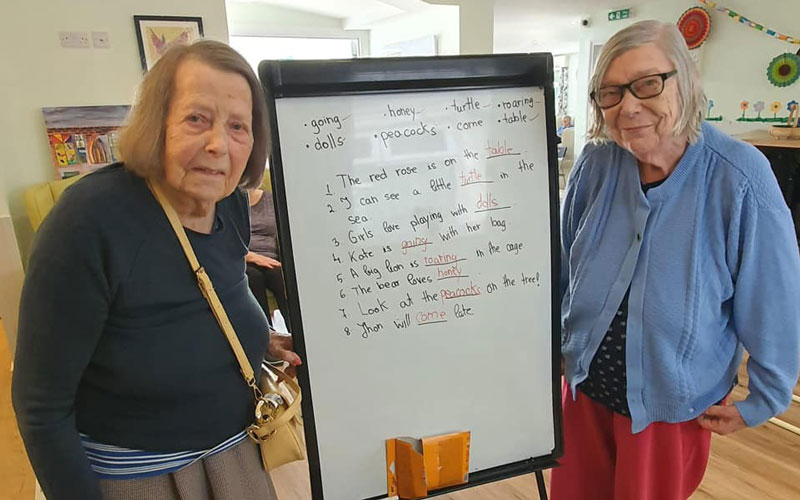 • going • honey • turtle • roaring
• dolls • peacocks • come • table
1 The red rose is on the table.
2 I can see a little turtle in the
sea.
3 Girls love playing with dolls
4 Kate is going with her bag.
5 A big lion is roaring in the cage
6 The bear loves honey
7 Look at the peacocks on the tree!
8 Jhon will come late